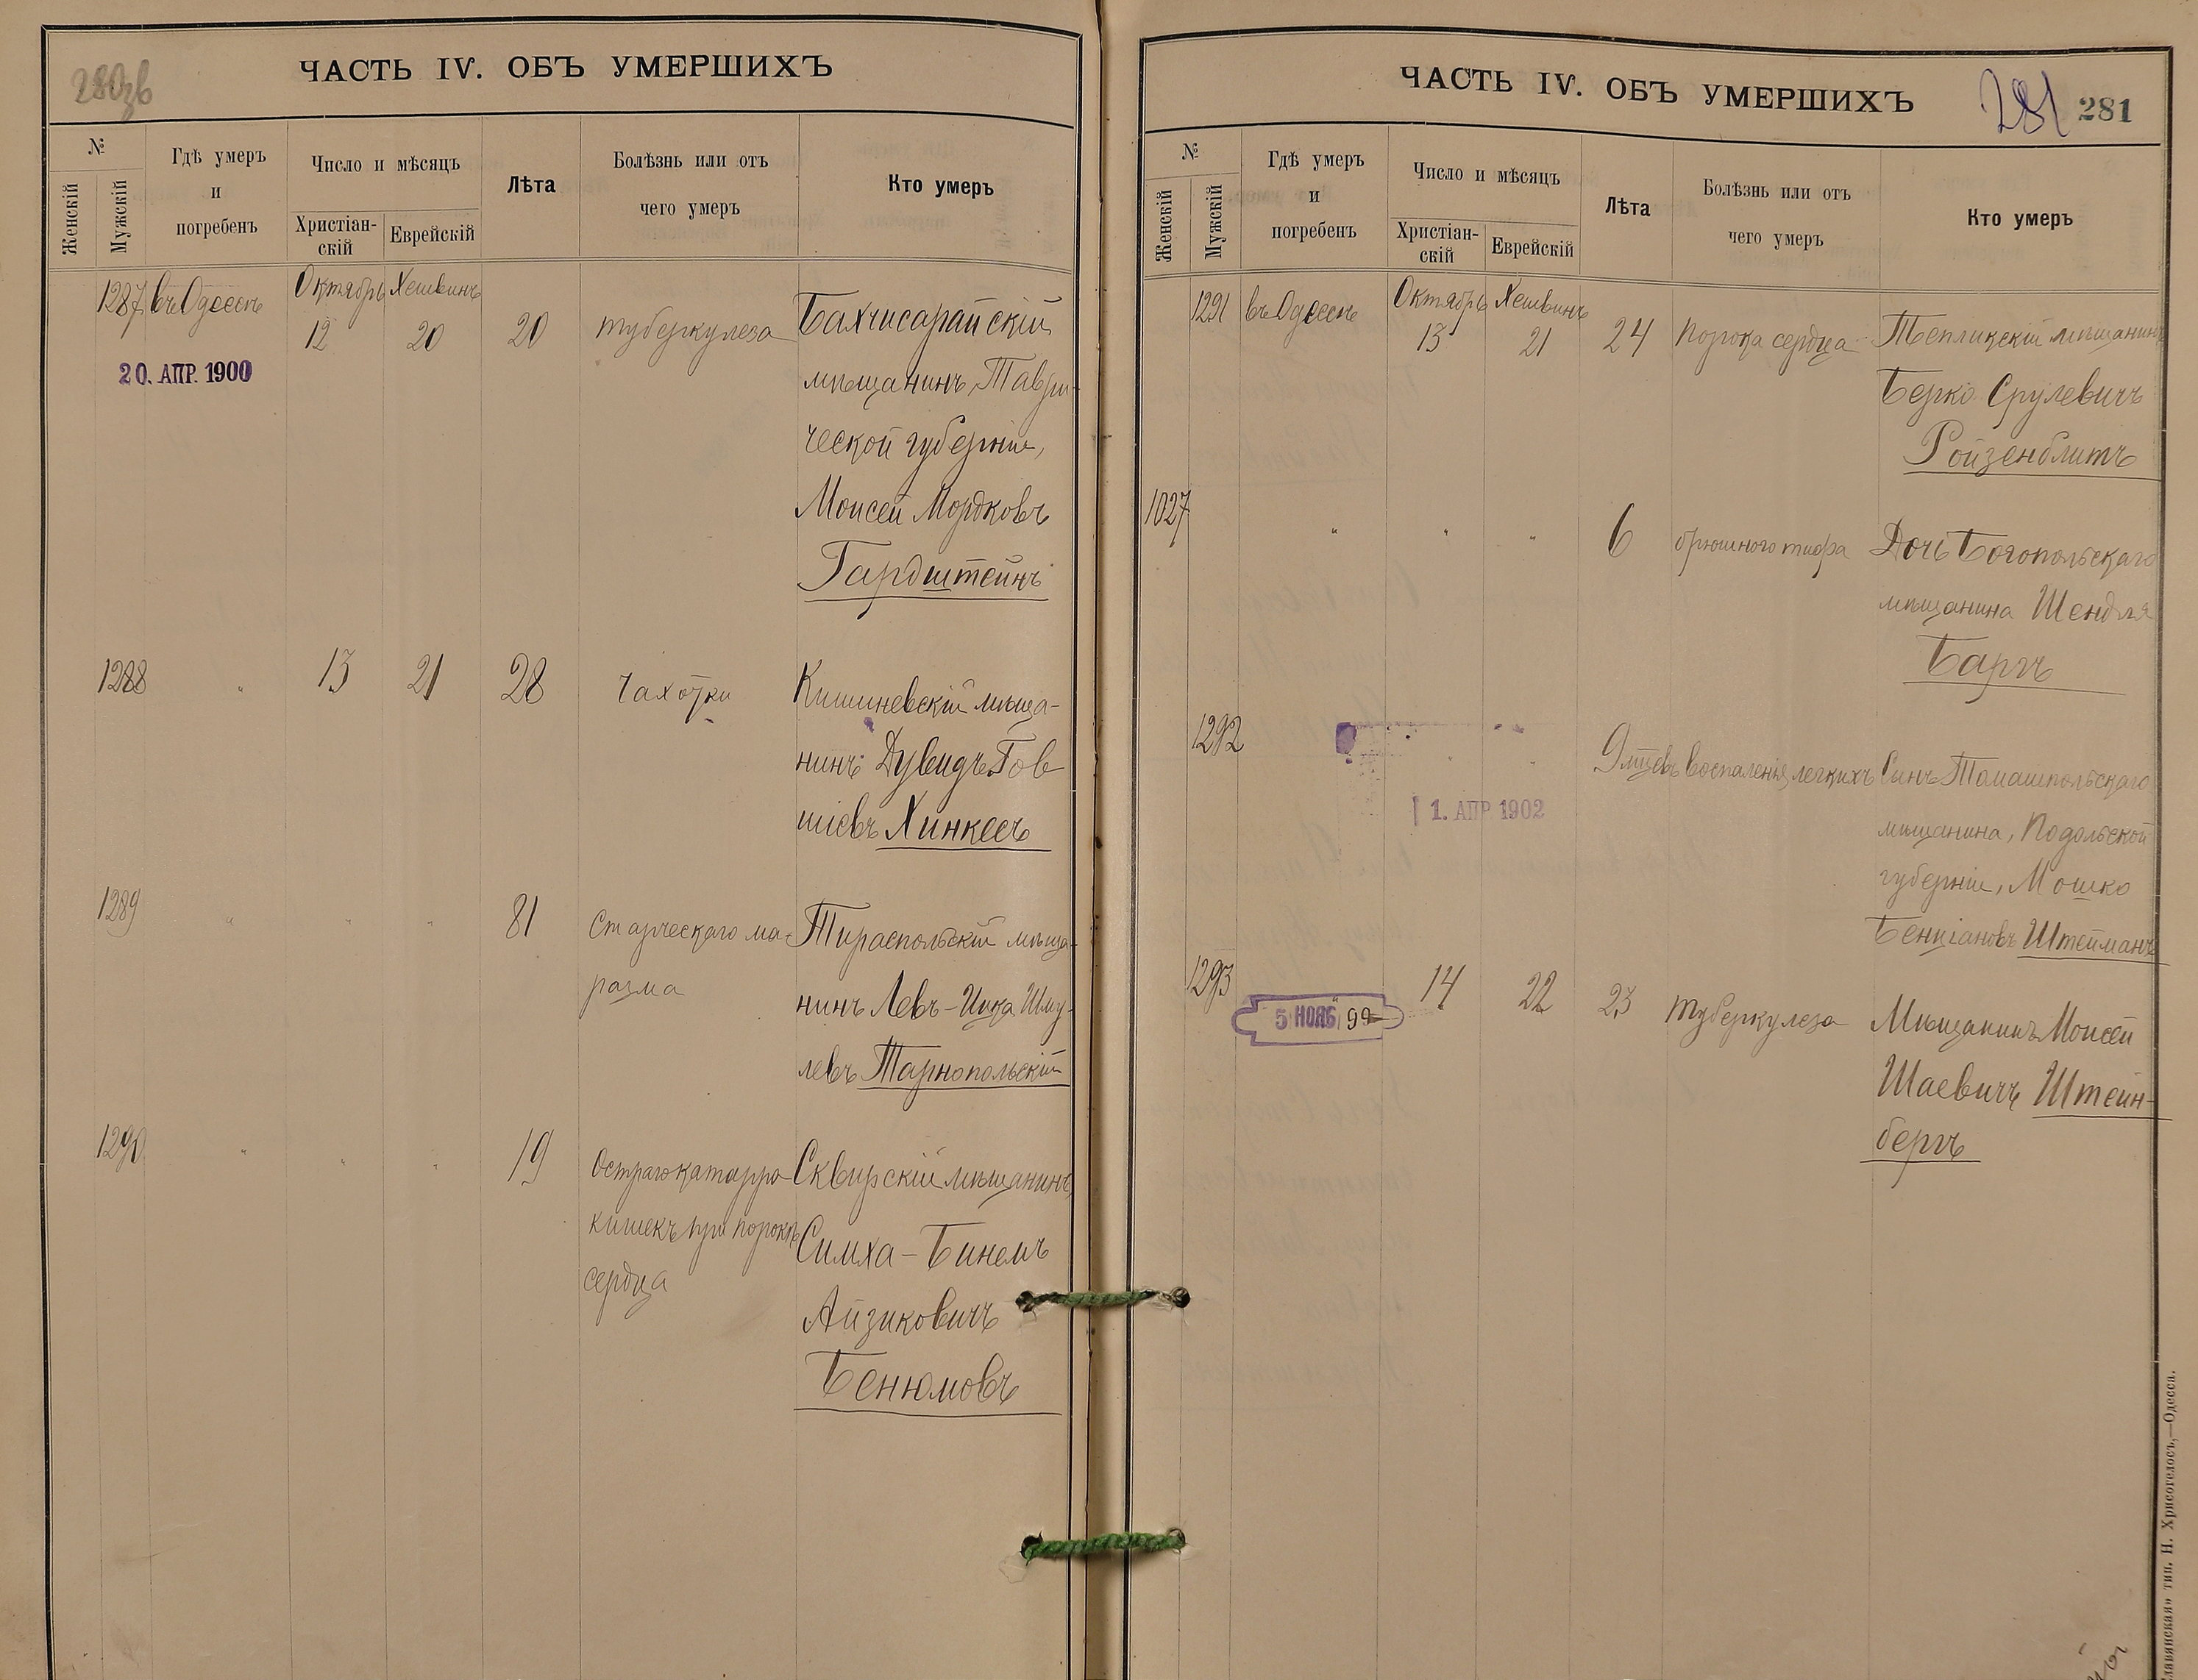 280зв
ЧАСТЬ IV. ОБЪ УМЕРШИХЪ
№
Женскій
Мужскій
Гдѣ умеръ
и
погребенъ
Число и мѣсяцъ
Христіан-
скій
Еврейскій
Лѣта
Болѣзнь или отъ
чего умеръ
Кто умеръ
1287 въ Одессѣ Октябрь Хешвинъ
12 20 20 туберкулеза Бахчисарайскій
20. АПР. 1900
мѣщанинъ, Таври-
ческой губерніи,
Моисей Мордковъ
Гардштейнъ
1288 " 13 21 28 чахотки Кишиневскій мѣща-
нинъ Дувидъ Гов
шіевъ Хинкесъ
1289 " " " 81 Старческаго ма- Тираспольскій мѣща-
разма нинъ Левъ-Ицка Шму-
левъ Тарнопольскій
1290 " " " 19 Остраго катарра Сквирскій мѣщанинъ,
кишекъ при порокѣ Симха-Бинемъ
сердца Айзиковичъ
Бенюмовъ
ЧАСТЬ IV. ОБЪ УМЕРШИХЪ
281 281
№
Женскій
Мужскій
Гдѣ умеръ
и
погребенъ
Число и мѣсяцъ
Христіан-
скій
Еврейскій
Лѣта
Болѣзнь или отъ
чего умеръ
Кто умеръ
1291 въ Одессѣ Октябрь Хешвинъ
13 21 24 порока сердца Тепликскій мѣщанинъ
Берко Срулевичъ
Ройзенблитъ
1027 " " " 6 брюшного тифа Дочь Богопольскаго
мѣщанина Шендля
Баргъ
1292 " " 9 мцевъ воспаленія легкихъ Сынъ Томашпольскаго
1. АПР 1902
мѣщанина, Подольской
губерніи, Мошко
Бенціановъ Штейманъ
1293 14 22 23 туберкулеза Мѣщанинъ Моисей
5 НОЯБ 99
Шаевичъ Штейн-
бергъ
Славянская» тип. Н. Хрисогелосъ,—Одесса.